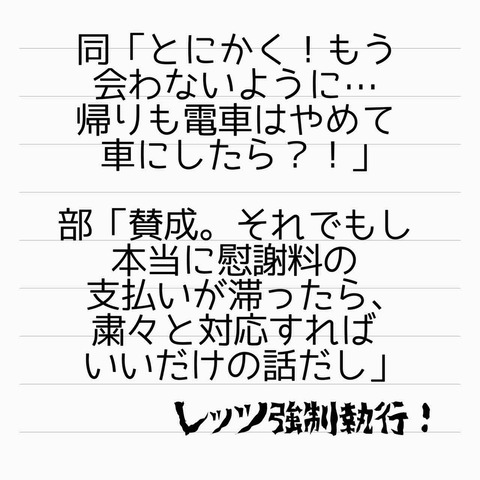 同「とにかく！もう
会わないように…
帰りも電車はやめて
車にしたら？！」
部「賛成。それでもし
本当に慰謝料の
支払いが滞ったら、
粛々と対応すれば
いいだけの話だし」
レッツ強制執行！